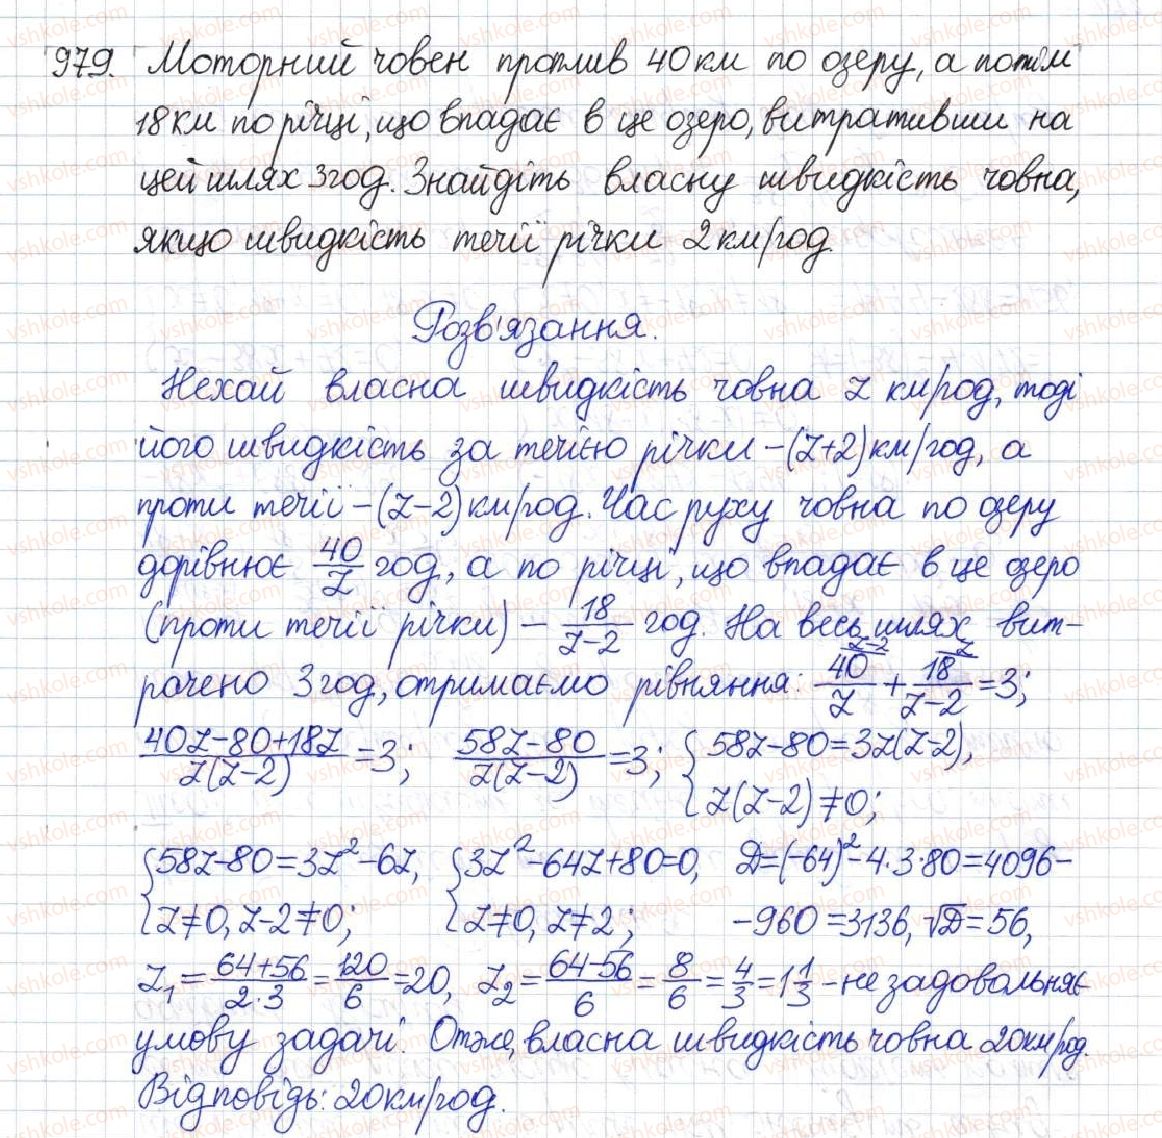 979. Моторний човен проплив 40 км по озеру, а потім
18 км по річці, що впадає в це озеро, витративши на
цей шлях 3 год. Знайдіть власну швидкість човна,
якщо швидкість течії річки 2 км/год.
Розв'язання.
Нехай власна швидкість човна z км/год, тоді
його швидкість за течією річки – (z+2) км/год, а
проти течії – (z–2) км/год. Час руху човна по озеру
дорівнює 40/z год, а по річці, що впадає в це озеро
(проти течії річки) – 18/(z–2) год. На весь шлях вит-
рачено 3 год, отримаємо рівняння: 40/z (z–2) + 18/(z–2) (z) = 3;
(40z–80+18z)/(z(z–2)) = 3; (58z–80)/(z(z–2)) = 3; { 58z–80=3z(z–2),
z(z–2)≠0;
{ 58z–80=3z²–6z, { 3z²–64z+80=0, D=(–64)²–4·3·80=4096–
z≠0, z–2≠0; z≠0, z≠2; –960=3136, √D=56,
z₁ = (64+56)/(2·3) = 120/6 = 20, z₂ = (64–56)/6 = 8/6 = 4/3 = 1 1/3 – не задовольняє
умову задачі. Отже, власна швидкість човна 20 км/год.
Відповідь: 20 км/год.